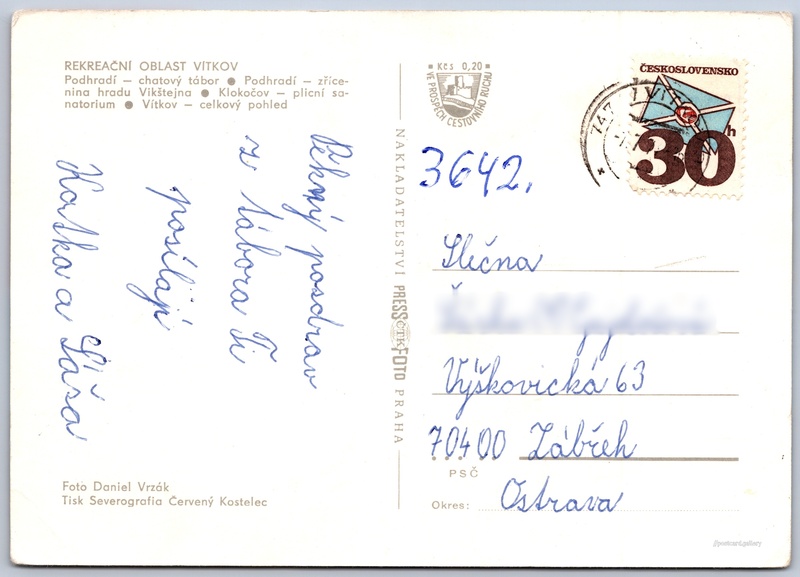 REKREAČNÍ OBLAST VÍTKOV
Podhradí — chatový tábor ● Podhradí — zříce-
nina hradu Vikštejna ● Klokočov — plicní sa-
natorium ● Vítkov — celkový pohled
Pěkný pozdrav
z tábora Ti
posílají
Katka a Sáša
Foto Daniel Vrzák
Tisk Severografia Červený Kostelec
NAKLADATELSTVÍ PRESSFOTO PRAHA
ČTK
Kčs 0,20
VE PROSPĚCH CESTOVNÍHO RUCHU
ČESKOSLOVENSKO
30h
747
VÍT
3642.
Slečna
Výškovická 63
70400 Zábřeh
PSČ
Okres: Ostrava